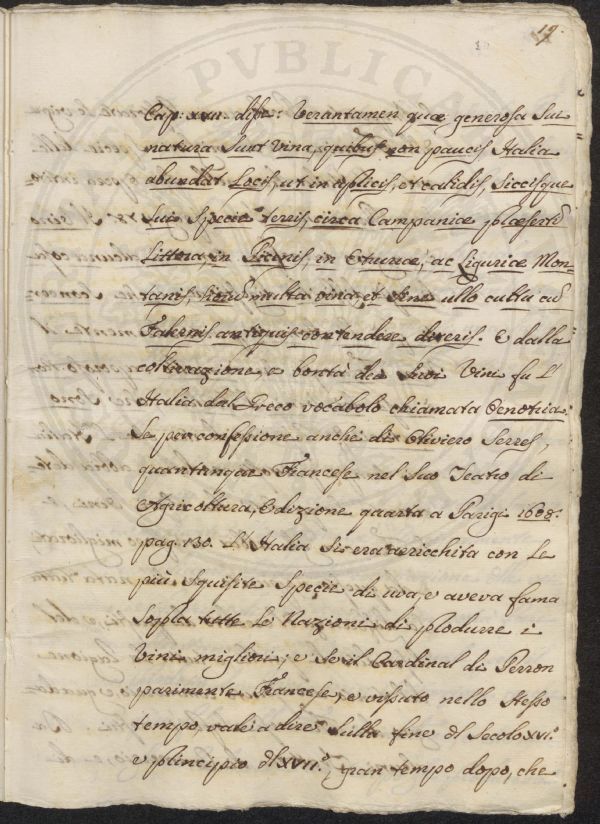 19.
Cap: XVII. disse: Verantamen quæ generosa sui
natura sunt vina, quibus non paucis Italia
abundat Locis, ut in aplicis, et calidis, siccisque
suis specie terris, circa Campaniæ plæsertȋ
Littora, in Picenis, in Etruriæ, ac Liguriæ Mon-
tanis, multa vina, et sine ullo cultu cū
Falernis antiquis contendere dixeris. E dalla
coltivazione, e bontà dei suoi Vini fu l'
Italia dal Greco vocabolo chiamata Oenotria.
Se per confessione anche di Oliviero Serres,
quantunque Francese nel suo Teatro di
Agricoltura, Edizione quarta a Parigi 1608.
pag. 130. L'Italia si era arricchita con le
più squisite specie di uva, e aveva fama
sopra tutte le Nazioni di produrre i
Vini migliori; e se il Cardinal di Perron
parimente Francese, e vissuto nello stesso
tempo, vale a dire sulla fine dl Secolo XVI.º
e principio dl XVII.º, gran tempo dopo, che